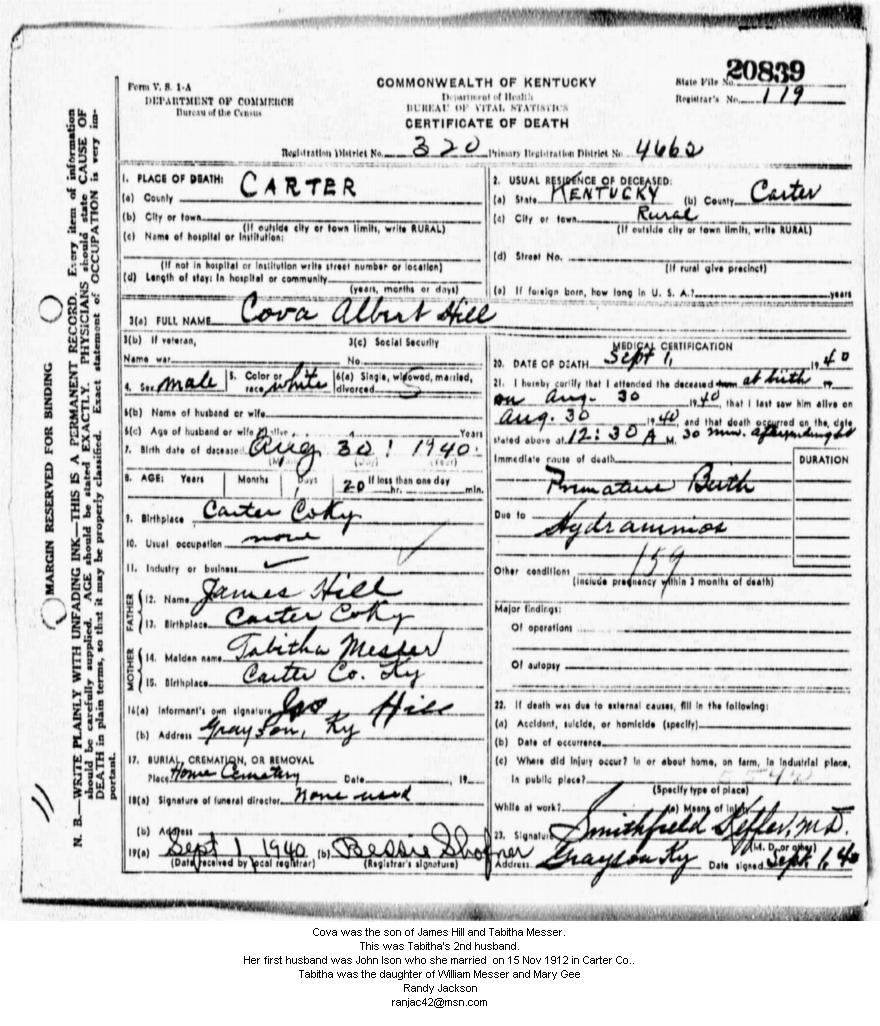 20839
Form V. S. 1-A
DEPARTMENT OF COMMERCE
Bureau of the Census
COMMONWEALTH OF KENTUCKY
Department of Health
BUREAU OF VITAL STATISTICS
CERTIFICATE OF DEATH
State File No.
Registrar's No. 119
Registration District No. 320 Primary Registration District No. 4662
MARGIN RESERVED FOR BINDING
N. B.—WRITE PLAINLY WITH UNFADING INK—THIS IS A PERMANENT RECORD. Every item of information
should be carefully supplied. AGE should be stated EXACTLY. PHYSICIANS should state CAUSE OF
DEATH in plain terms, so that it may be properly classified. Exact statement of OCCUPATION is very im-
portant.
1. PLACE OF DEATH:
(a) County CARTER
(b) City or town
(If outside city or town limits, write RURAL)
(c) Name of hospital or institution:
(If not in hospital or institution write street number or location)
(d) Length of stay: In hospital or community
(years, months or days)
2. USUAL RESIDENCE OF DECEASED:
(a) State KENTUCKY (b) County Carter
(c) City or town Rural
(If outside city or town limits, write RURAL)
(d) Street No.
(If rural give precinct)
(e) If foreign born, how long in U. S. A.? years
3(a) FULL NAME Cova Albert Hill
3(b) If veteran,
Name war
3(c) Social Security
No.
4. Sex male 5. Color or race white 6(a) Single, widowed, married, divorced S
6(b) Name of husband or wife
6(c) Age of husband or wife if alive Years
7. Birth date of deceased Aug 30 1940
(Day) (Year)
8. AGE: Years Months Days If less than one day
20 hr. min.
9. Birthplace Carter Co Ky
10. Usual occupation none
11. Industry or business
FATHER
12. Name James Hill
13. Birthplace Carter Co Ky
MOTHER
14. Maiden name Tabitha Messer
15. Birthplace Carter Co. Ky
16(a) Informant's own signature Jas Hill
(b) Address Grayson, Ky
17. BURIAL, CREMATION, OR REMOVAL
Place Home Cemetery Date 19
18(a) Signature of funeral director None used
(b) Address
19(a) Sept 1, 1940 (b) Bessie Shofner
(Date received by local registrar) (Registrar's signature)
MEDICAL CERTIFICATION
20. DATE OF DEATH Sept 1, 1940
21. I hereby certify that I attended the deceased from at birth 19
on Aug. 30 1940, that I last saw him alive on
Aug. 30 1940, and that death occurred on the date
stated above at 12:30 A M. 30 min. after midnight
Immediate cause of death
DURATION
Premature Birth
Due to Hydramnios
159
Other conditions
(include pregnancy within 3 months of death)
Major findings:
Of operations
Of autopsy
22. If death was due to external causes, fill in the following:
(a) Accident, suicide, or homicide (specify)
(b) Date of occurrence
(c) Where did injury occur? In or about home, on farm, in industrial place,
in public place?
(Specify type of place)
While at work? (e) Means of injury
23. Signature Smithfield M.D.
(M. D. or other)
Address Grayson Ky Date signed Sept 1, 40
Cova was the son of James Hill and Tabitha Messer.
This was Tabitha's 2nd husband.
Her first husband was John Ison who she married on 15 Nov 1912 in Carter Co..
Tabitha was the daughter of William Messer and Mary Gee
Randy Jackson
ranjac42@msn.com